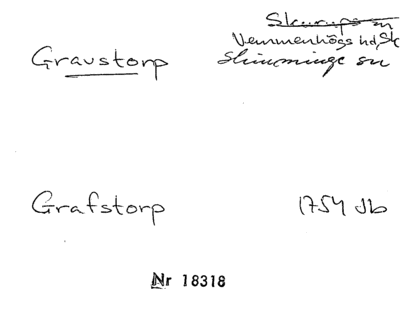 Skurups sn
Vemmenhögs hd, Sk
Gravstorp Slimminge sn
Grafstorp 1754 Jb
Nr 18318